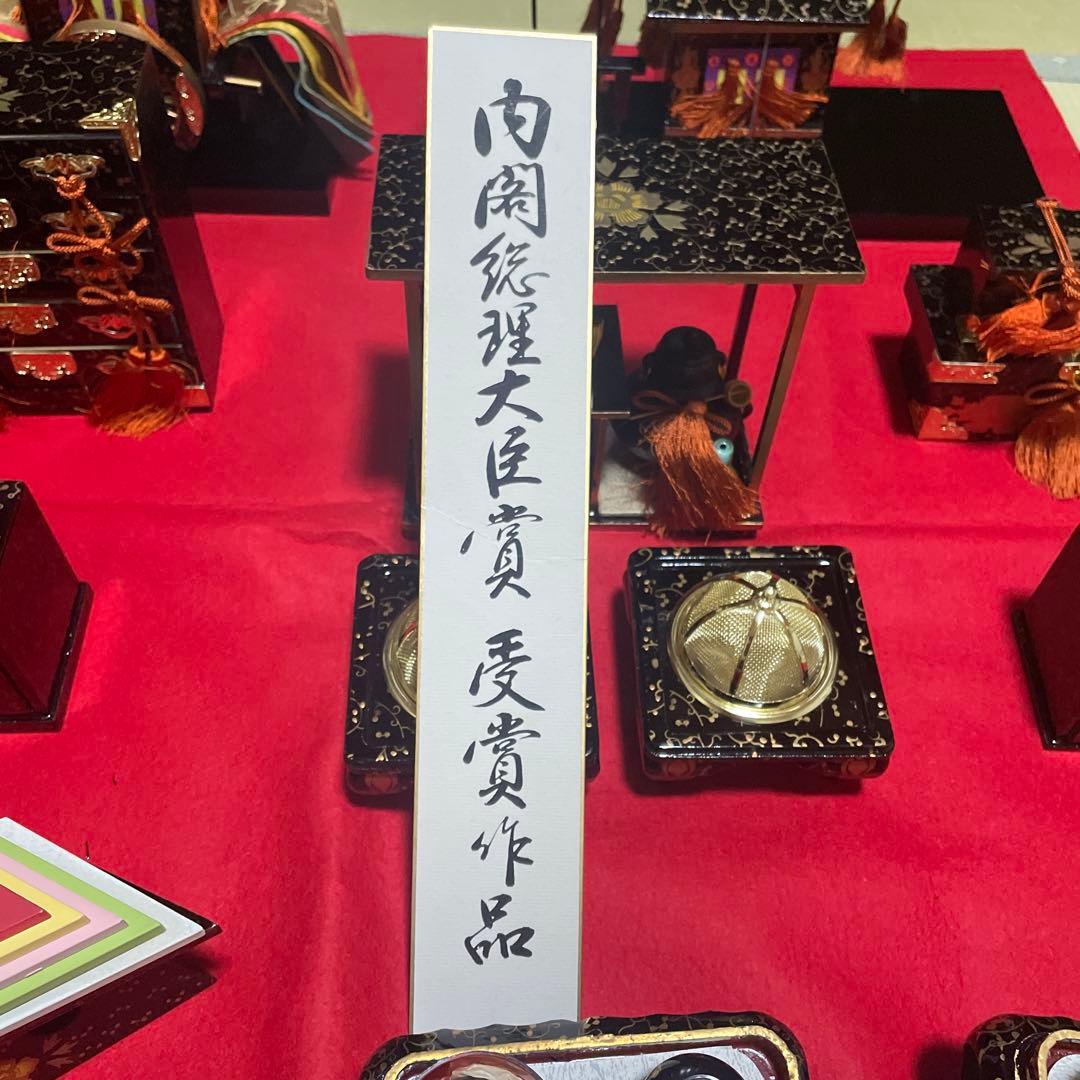 内閣総理大臣賞 受賞作品